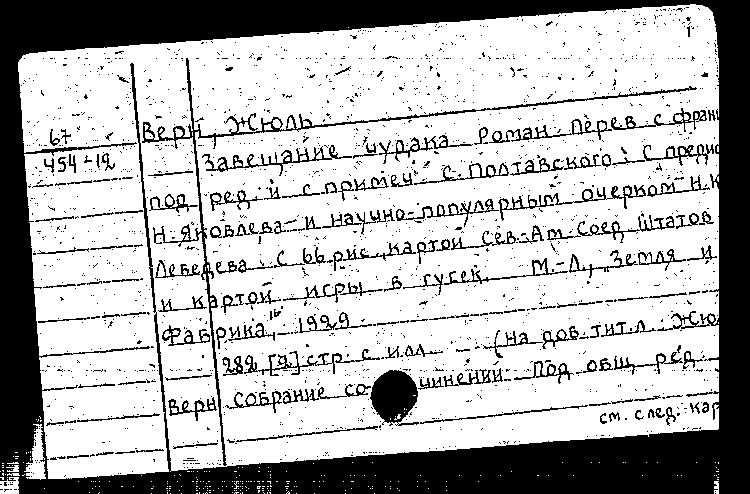 67
454-12
Верн, Жюль
Завещание чудака Роман Перев с франц
под ред. и с примеч. С. Полтавского. С предис
Н. Яковлева и научно-популярным очерком Н.К
Лебедева. С 66 рис., картой Сев-Ам. Соед Штатов
и картой игры в гусек. М.-Л., Земля и
Фабрика, 1929
282, [2] стр. с илл. - (На доб. тит. л. Жюл
Верн Собрание сочинений Под общ ред
см. след. кар